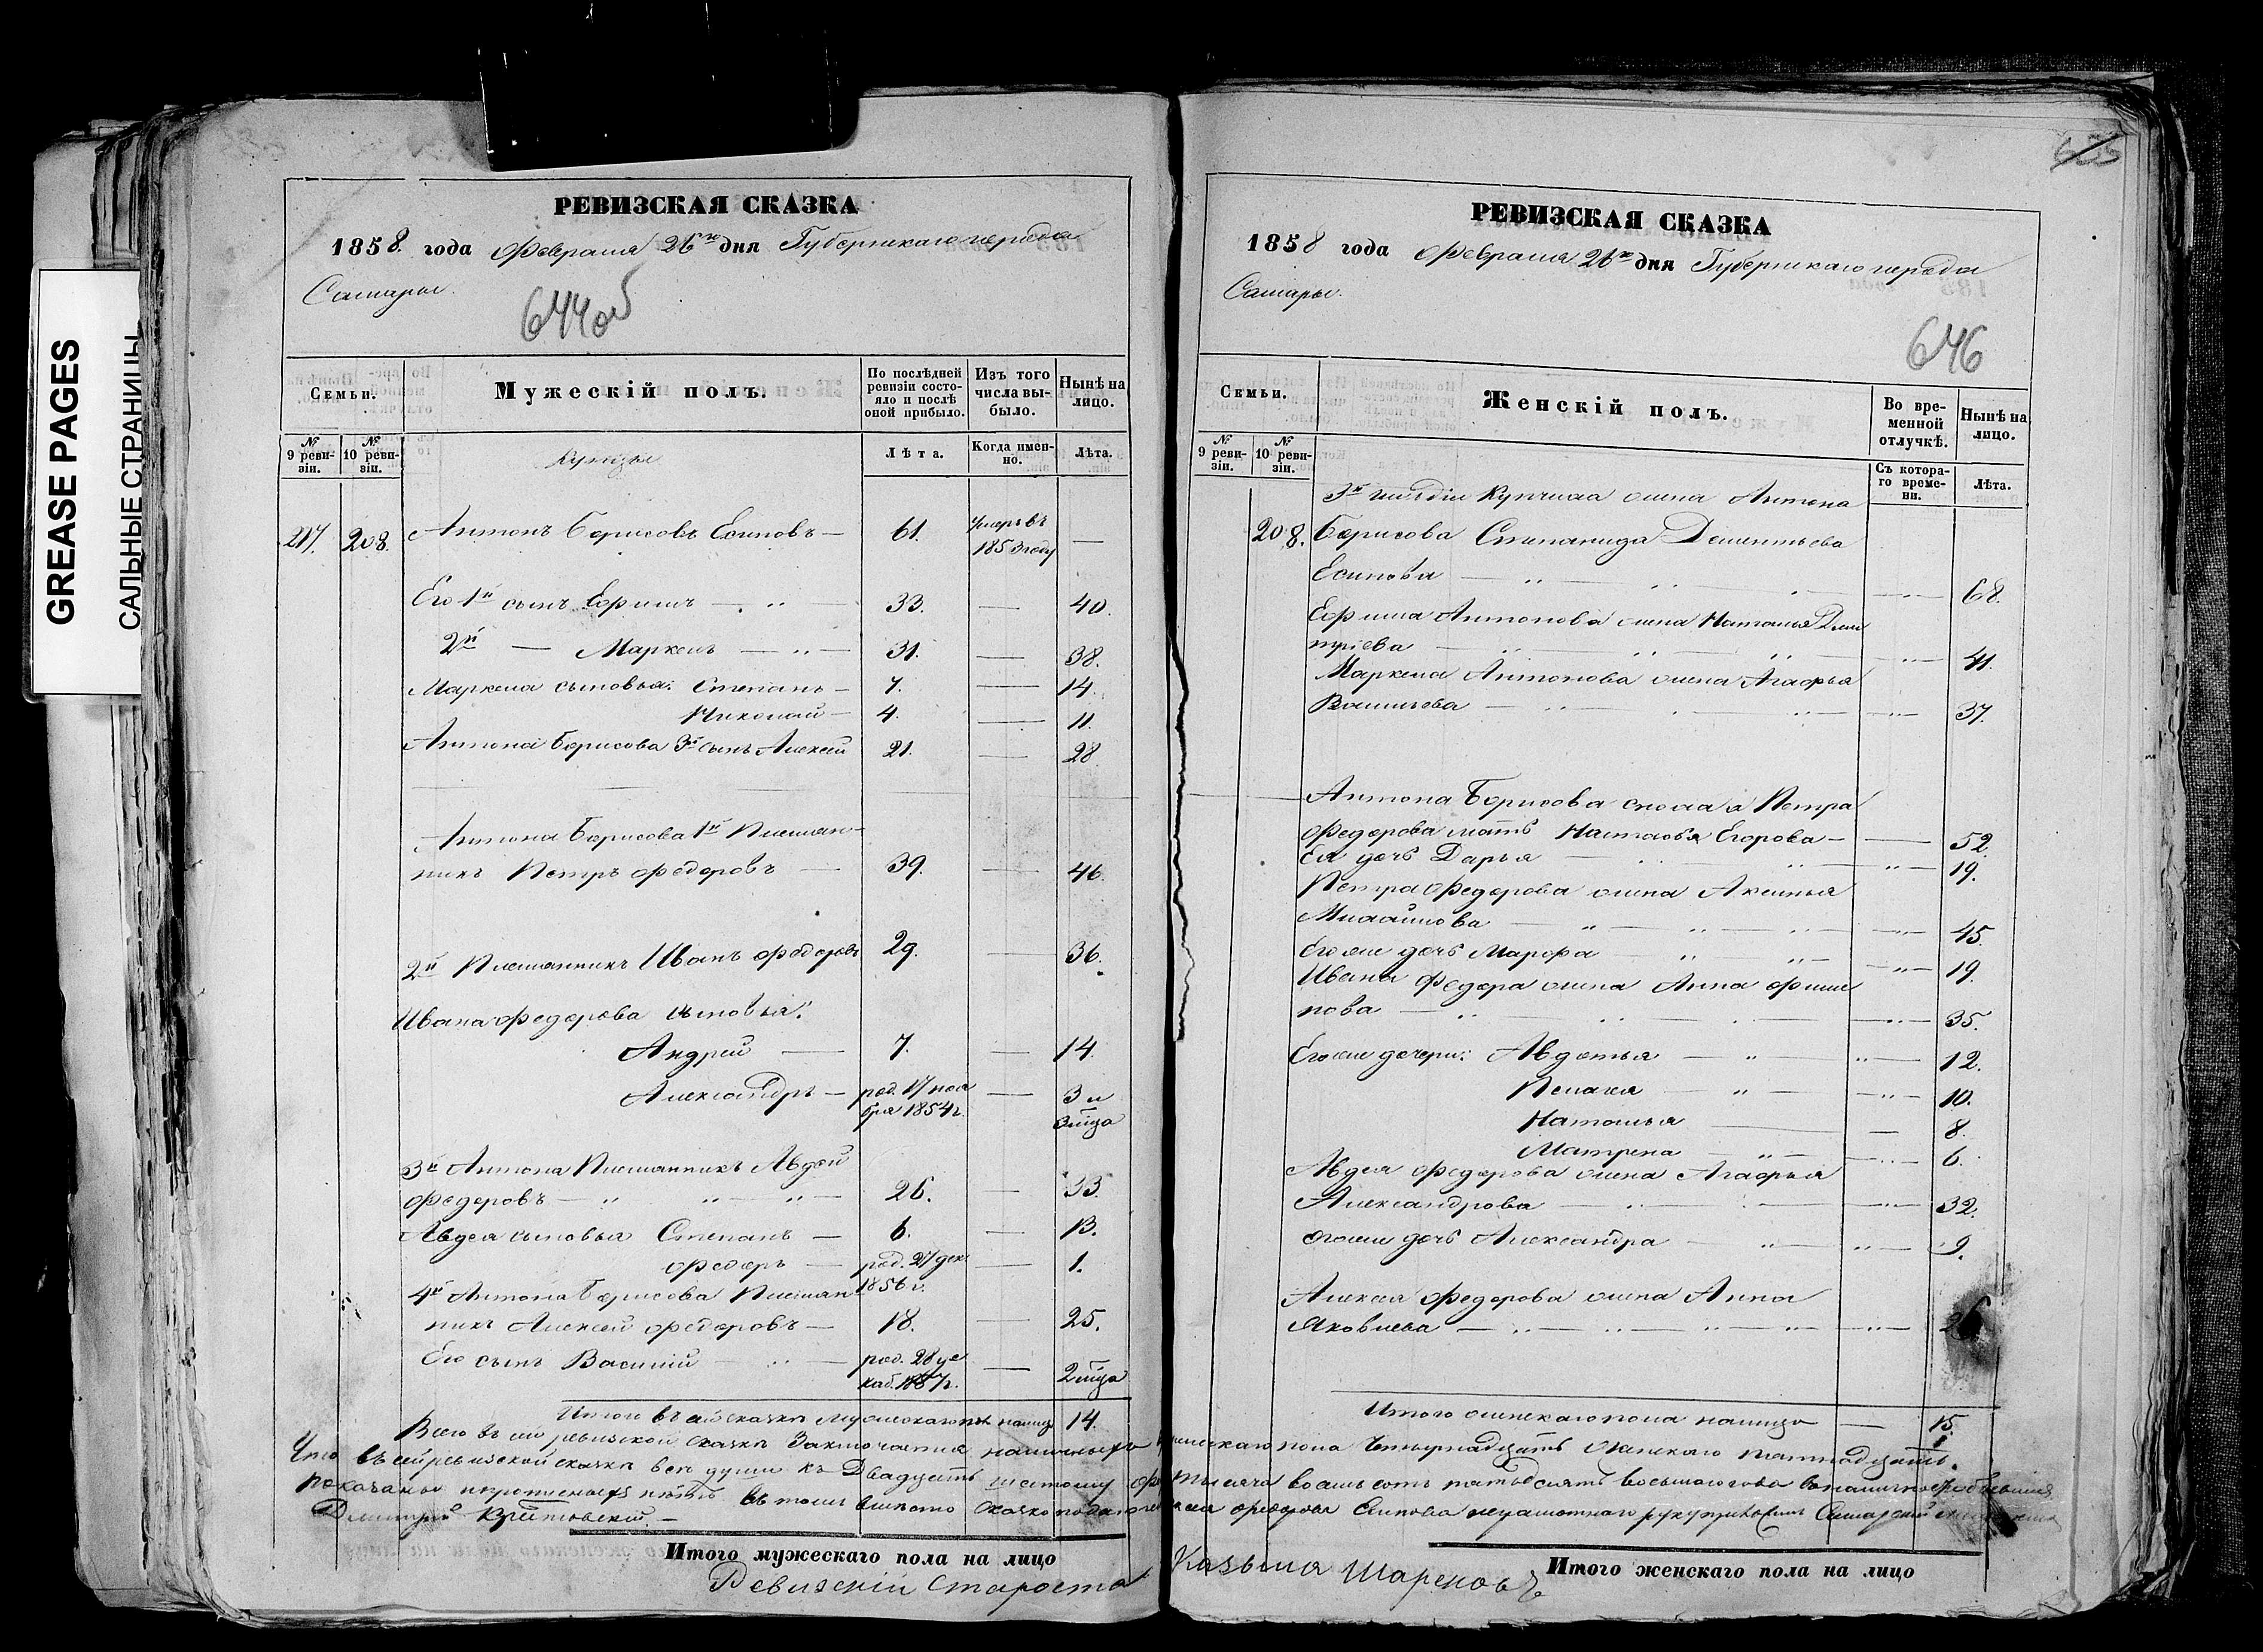 GREASE PAGES
САЛЬНЫЕ СТРАНИЦЫ
РЕВИЗСКАЯ СКАЗКА
1858. года Февраля 26го дня Губернскаго города
Самары.
644об
Семьи.
Мужескій полъ.
По послѣдней ревизіи состояло и послѣ оной прибыло.
Изъ того числа выбыло.
Нынѣ на лицо.
№ 9 ревизіи.
№ 10 ревизіи.
Лѣта.
Когда именно.
Лѣта.
Купцы
217. 208. Антонъ Борисовъ Есиповъ — 61. умеръ въ 1853 году —
Его 1й сынъ Ефимъ — 33. — 40.
2й — Маркелъ — 31. — 38.
Маркела сыновья: Степанъ — 7. — 14.
Николай — 4. — 11.
Антона Борисова 3й сынъ Алексей 21. — 28.
Антона Борисова 1й Племян-
никъ Петръ Федоровъ — 39. — 46.
2й Племянникъ Иванъ Федоровъ 29. — 36.
Ивана Федорова сыновья:
Андрей — 7. — 14.
Александръ — род. 17 ноя
бря 1854 г. — 3 и
3 мца
3й Антона Племянникъ Авдей
Федоровъ — 26. — 33.
Авдея сыновья Степанъ — 6. — 13.
Федоръ — род. 27 дек — 1.
4й Антона Борисова Племян- 1856 г.
никъ Алексей Федоровъ — 18. — 25.
Его сынъ Василій — род. 28 де
каб. 1857 г. — 2 мца
Итого въ сей сказке мужескаго пола налицо 14.
РЕВИЗСКАЯ СКАЗКА
1858 года Февраля 26го дня Губернскаго города
Самары.
646
Семьи.
Женскій полъ.
Во временной отлучкѣ.
Нынѣ на лицо.
№ 9 ревизіи.
№ 10 ревизіи.
Съ котораго времени.
Лѣта.
3й гильдіи Купчиха жена Антона
208. Борисова Степанида Дементьева
Есипова — 68.
Ефима Антонова жена Наталья Дми
тріева — 41.
Маркела Антонова жена Агафья
Васильева — 37.
Антона Борисова сноха а Петра
Федорова мать Настасья Егорова — 52.
Ея дочь Дарья — 19.
Петра Федорова жена Аксинья
Михайлова — 45.
Его же дочь Марфа — 19.
Ивана Федора жена Анна Филип
пова — 35.
Его же дочери: Авдотья — 12.
Пелагея — 10.
Наталья — 8.
Матрена — 6.
Авдея Федорова жена Агафья
Александрова — 32.
его же дочь Александра — 9.
Алексея Федорова жена Анна
Яковлева — 26
Итого женскаго пола налицо — 15.
Всего въ сей ревизской сказке заключается наличныхъ мужескаго пола четырнадцать женскаго пятнадцать.
Что въ сей ревизской сказке все души къ Двадцать шестому тысяча восемь сотъ пятьдесятъ восьмаго года
показаны въ томъ вместо Федорова Есипова неграмотнаго Самарскій
Дмитрій
Итого мужескаго пола на лицо
Итого женскаго пола на лицо
Ревизскій Староста Казьма Шареновъ